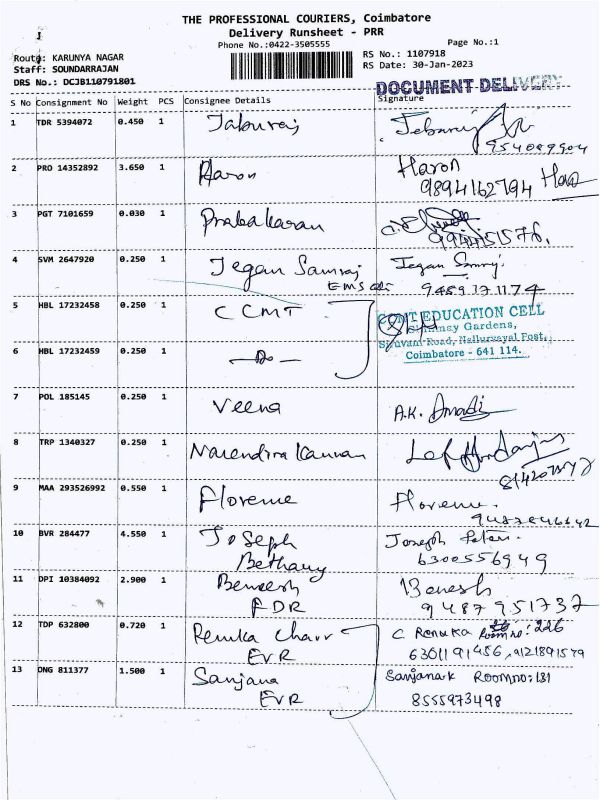 THE PROFESSIONAL COURIERS, Coimbatore
Delivery Runsheet - PRR
Phone No.:0422-3505555
Page No.:1
Route: KARUNYA NAGAR
RS No.: 1107918
Staff: SOUNDARRAJAN
RS Date: 30-Jan-2023
DRS No.: DCJB110791801
DOCUMENT DELIVERY
S No Consignment No Weight PCS Consignee Details Signature
1 TDR 5394072 0.450 1 Jaburaj Jeburaj
2 PRO 14352892 3.650 1 Haron Haron
9894162794
3 PGT 7101659 0.030 1 Prabakaran
4 SVM 2647920 0.250 1 Jegan Samraj Jegan Samraj
EMS
9489371174
5 HBL 17232458 0.250 1 CCMT
EDUCATION CELL
Gardens,
Siruvani Road, Nallurvayal Post,
Coimbatore - 641 114.
6 HBL 17232459 0.250 1 -Do-
7 POL 185145 0.250 1 Veena A.K.
8 TRP 1340327 0.250 1 Narendira Kannan
9 MAA 293526992 0.550 1 Florence Florence.
10 BVR 284477 4.550 1 Joseph Joseph Peter.
Bethany 6300556949
11 DPI 10384092 2.900 1 Beneesh Benesh
FDR 9487951737
12 TDP 632800 0.720 1 Renuka C Renuka Room no: 226
EVR 6301191456, 9121891579
13 DNG 811377 1.500 1 Sanjana Sanjana.k Room no: 131
EVR 8555973498